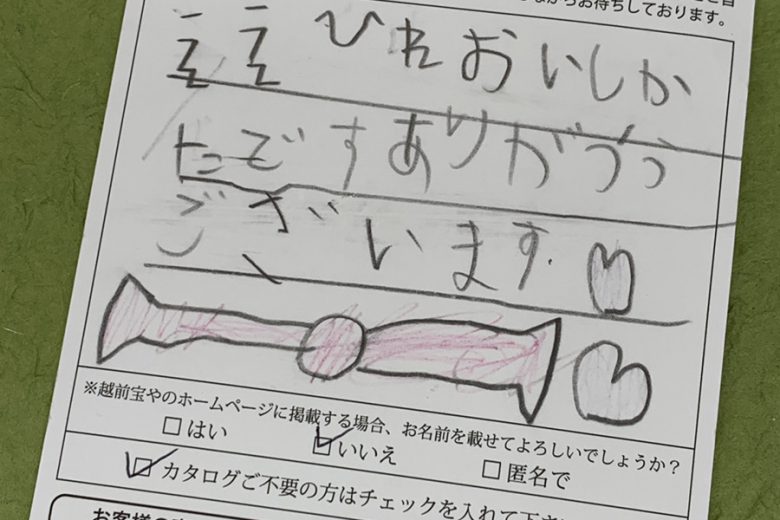 お待ちしております。
ええ ひれ おいしか
たです ありがつう
ございます
※越前宝やのホームページに掲載する場合、お名前を載せてよろしいでしょうか？
□はい ☑いいえ □匿名で
☑カタログご不要の方はチェックを入れて下さ
お客様の